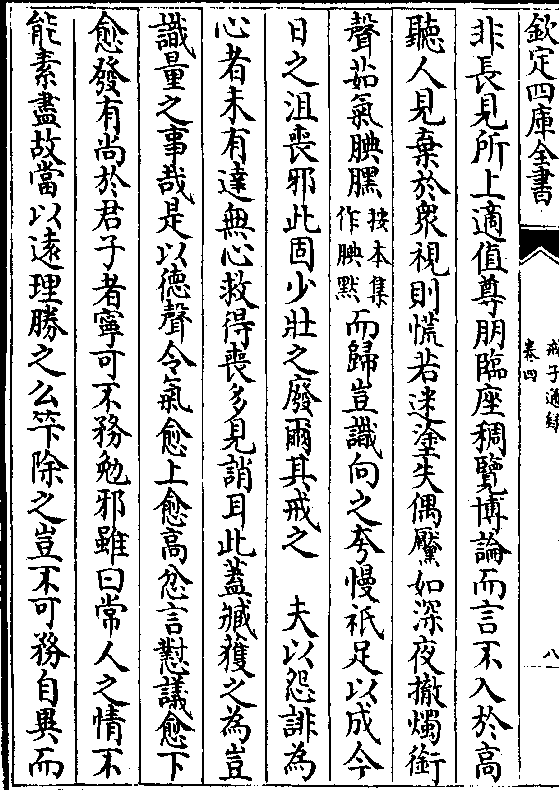 欽定四庫全書
戒子通錄
卷四
八
非長見所上適值尊朋臨座稠覽博論而言不入於高
聽人見棄於衆視則慌若迷塗失偶黶如深夜撤燭銜
聲茹氣腆䵝按本集作腆默而歸豈識向之夸慢祇足以成今
日之沮喪邪此固少壯之廢爾其戒之　夫以怨誹為
心者未有達無心救得喪多見誚耳此蓋臧獲之為豈
識量之事哉是以德聲令氣愈上愈高忿言懟議愈下
愈發有尚於君子者寧可不務勉邪雖曰常人之情不
能素盡故當以遠理勝之么筭除之豈不可務自異而